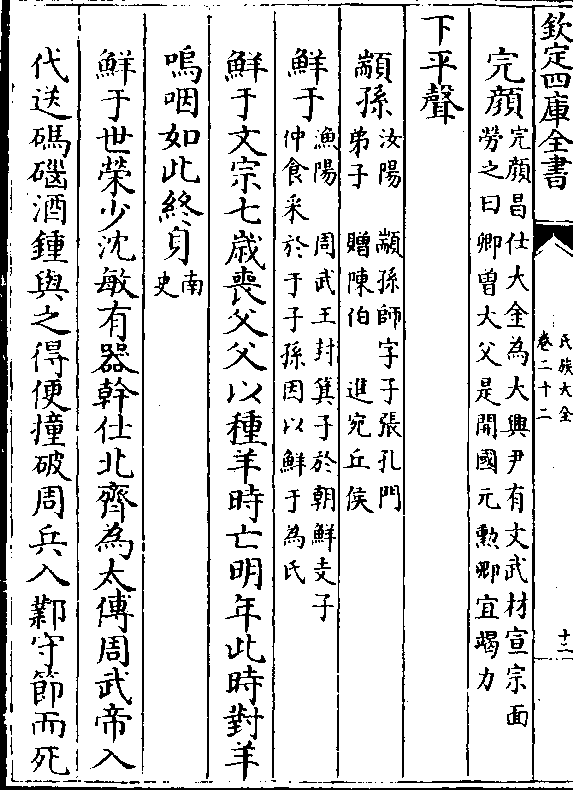 欽定四庫全書
氏族大全
卷二十二
十二
完顔
完顔昌仕大金為大興尹有文武材宣宗面
勞之曰卿曽大父是開國元勲卿宜竭力
下平聲
顓孫
汝陽 顓孫師字子張孔門
弟子 贈陳伯 進宛丘侯
鮮于
漁陽 周武王封箕子於朝鮮支子
仲食采於于子孫因以鮮于為氏
鮮于文宗七歳喪父父以種羊時亡明年此時對羊
嗚咽如此終身
南
史
鮮于世榮少沈敏有器幹仕北齊為太傅周武帝入
代送碼碯酒鍾與之得便撞破周兵入鄴守節而死